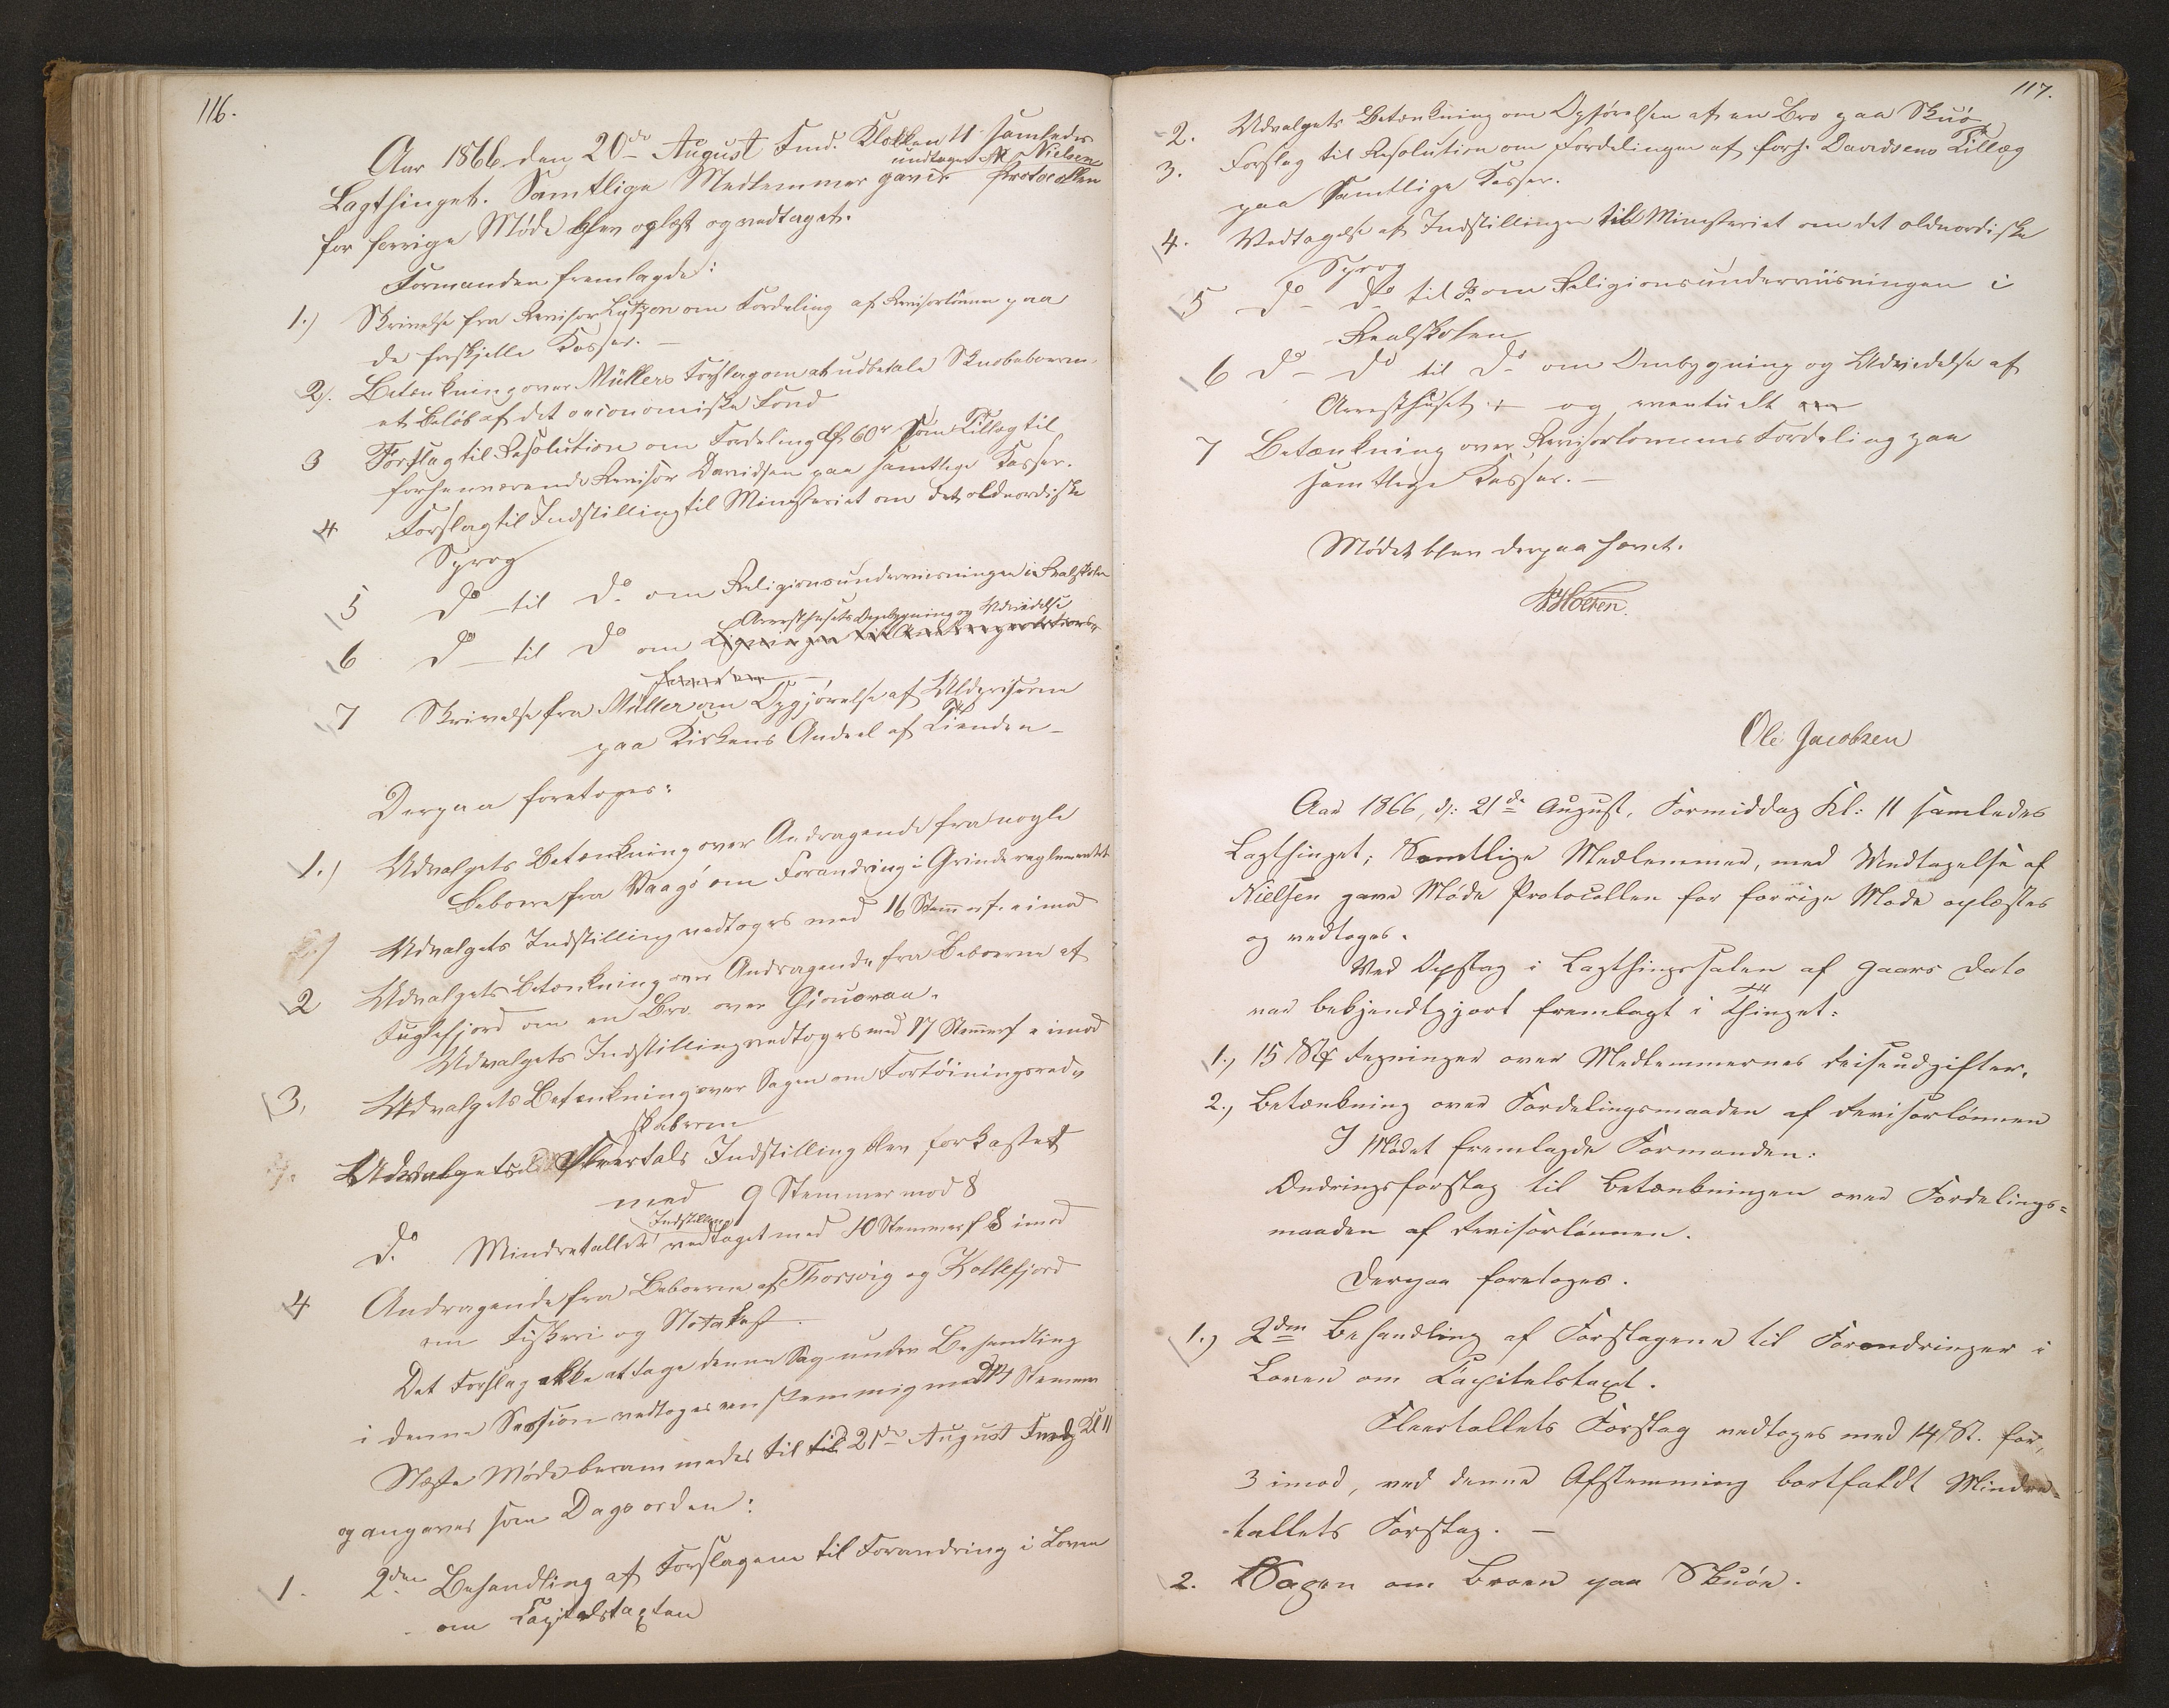 116.
Aar 1866 den 20de August Fmd. Klokken 11 samledes
undtagen M Nielsen
Lagthinget. Samtlige Medlemmer gave Protocollen
for forrige Møde blev oplæst og vedtaget.
Formanden fremlagde:
1.) Skrivelse fra Revisor Lützen om Fordeling af Revisorlønnen paa
de forskjelle Kasser. —
2). Betænkning over Müllers Forslag om at udbetale Skuøbeboerne
et Beløb af det oeconomiske Fond
3 Forslag til Resolution om Fordeling af 60 som Tillæg til
forhenværende Revisor Davidsen paa samtlige Kasser.
4 Forslag til Indstilling til Ministeriet om det oldnordiske
Sprog
5 Do – til Do om Religionsundervisningen i Realskolen
Arresthusets Ombygning og Udvidelse
6 Do – til Do om
7 Skrivelse fra Müller om Opgjørelse af Uldpriserne
paa Kirkens Andeel af Tienden –
Derpaa foretoges:
1.) Udvalgets Betænkning over Andragende fra nogle
Beboere fra Vaagø om Forandring i Grindereglementet
Udvalgets Indstilling vedtoges med 16 Stemmer f. e imod
2 Udvalgets Betænkning over Andragende fra Beboerne af
Fuglefjord om en Bro over Giouvraa.
Udvalgets Indstilling vedtoges med 17 Stemmer f e imod
3, Udvalgets Betænkning over Sagen om Fortøiningsred-
skaberne
Udvalgets Fleertals Indstilling blev forkastet
med 9 Stemmer mod 8
Indstilling
do. Mindretallets vedtaget med 10 Stemmer f 8 imod
4 Andragende fra Beboerne af Thorsvig og Kollefjord
om Fiskeri og Notakast.
Det Forslag ikke at tage denne Sag under Behandling
i denne Session vedtoges eenstemmig med 17 Stemmer
Næste Møde berammedes til til 21de August Fmdg Kl 11
og angaves som Dagsorden:
1. 2den Behandling af Forslagene til Forandring i Loven
om Capitelstaxten
117.
2. Udvalgets Betænkning om Opførelsen af en Bro paa Skuø
3. Forslag til Resolution om Fordelingen af forh. Davidsens Tillæg
paa samtlige Kasser.
4. Vedtagelse af Indstillingen til Ministeriet om det oldnordiske
Sprog
5 Do – Do til Do om Religionsunderviisningen i
Realskolen
6 Do – Do til Do om Ombygning og Udvidelse af
Arresthuset og eventuelt
7 Betænkning over Revisorlønnens Fordeling paa
samtlige Kasser. —
Mødet blev derpaa hævet.
Ole Jacobsen
Aar 1866, d: 21de August, Formiddag Kl: 11 samledes
Lagthinget; Samtlige Medlemmer, med Undtagelse af
Nielsen gave Møde Protocollen for forrige Møde oplæstes
og vedtoges.
Ved Opslag i Lagthingssalen af Gaars Dato
var bekjendtgjort fremlagt i Thinget:
1., 15 Stk Regninger over Medlemmernes Reiseudgifter.
2., Betænkning over Fordelingsmaaden af Revisorlønnen
I Mødet fremlagde Formanden:
Ændringsforslag til Betænkningen over Fordelings=
maaden af Revisorlønnen.
Derpaa foretoges.
1.) 2den Behandling af Forslagene til Forandringer i
Loven om Capitelstaxt.
Fleertallets Forslag vedtoges med 14 St. for,
3 imod, ved denne Afstemning bortfaldt Mindre=
=tallets Forslag. —
2. Sagen om Broen paa Skuøn.